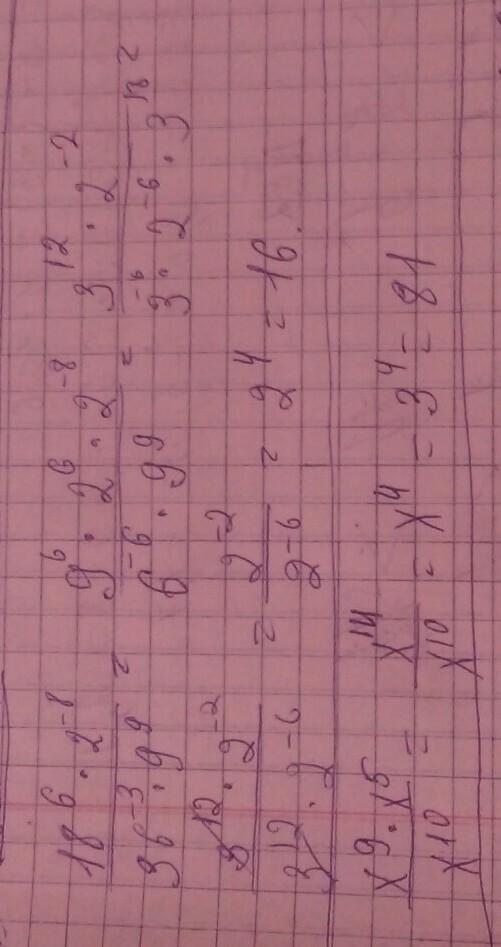 18^6 · 2^-8 / 36^-3 · 9^9 = 9^6 · 2^6 · 2^-8 / 6^-6 · 9^9 = 3^12 · 2^-2 / 3^-6 · 2^-6 · 3^18 =
3^12 · 2^-2 / 3^12 · 2^-6 = 2^-2 / 2^-6 = 2^4 = 16.
x^9 · x^5 / x^10 = x^14 / x^10 = x^4 = 3^4 = 81